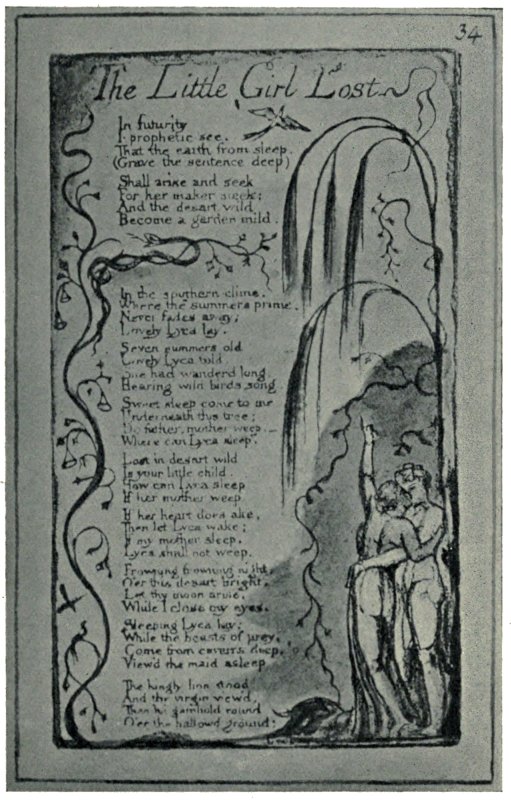 34
The Little Girl Lost
In futurity
I prophetic see.
That the earth from sleep.
(Grave the sentence deep)
Shall arise and seek
For her maker meek:
And the desart wild
Become a garden mild.
In the southern clime.
Where the summers prime.
Never fades away;
Lovely Lyca lay.
Seven summers old
Lovely Lyca told.
She had wanderd long.
Hearing wild birds song.
Sweet sleep come to me
Underneath this tree;
Do father, mother weep.
Where can Lyca sleep.
Lost in desart wild
Is your little child.
How can Lyca sleep
If her mother weep.
If her heart does ake,
Then let Lyca wake;
If my mother sleep,
Lyca shall not weep.
Frowning frowning night,
O'er this desart bright,
Let thy moon arise,
While I close my eyes.
Sleeping Lyca lay;
While the beasts of prey,
Come from caverns deep,
View'd the maid asleep
The kingly lion stood
And the virgin view'd,
Then he gambold round
O'er the hallowd ground;